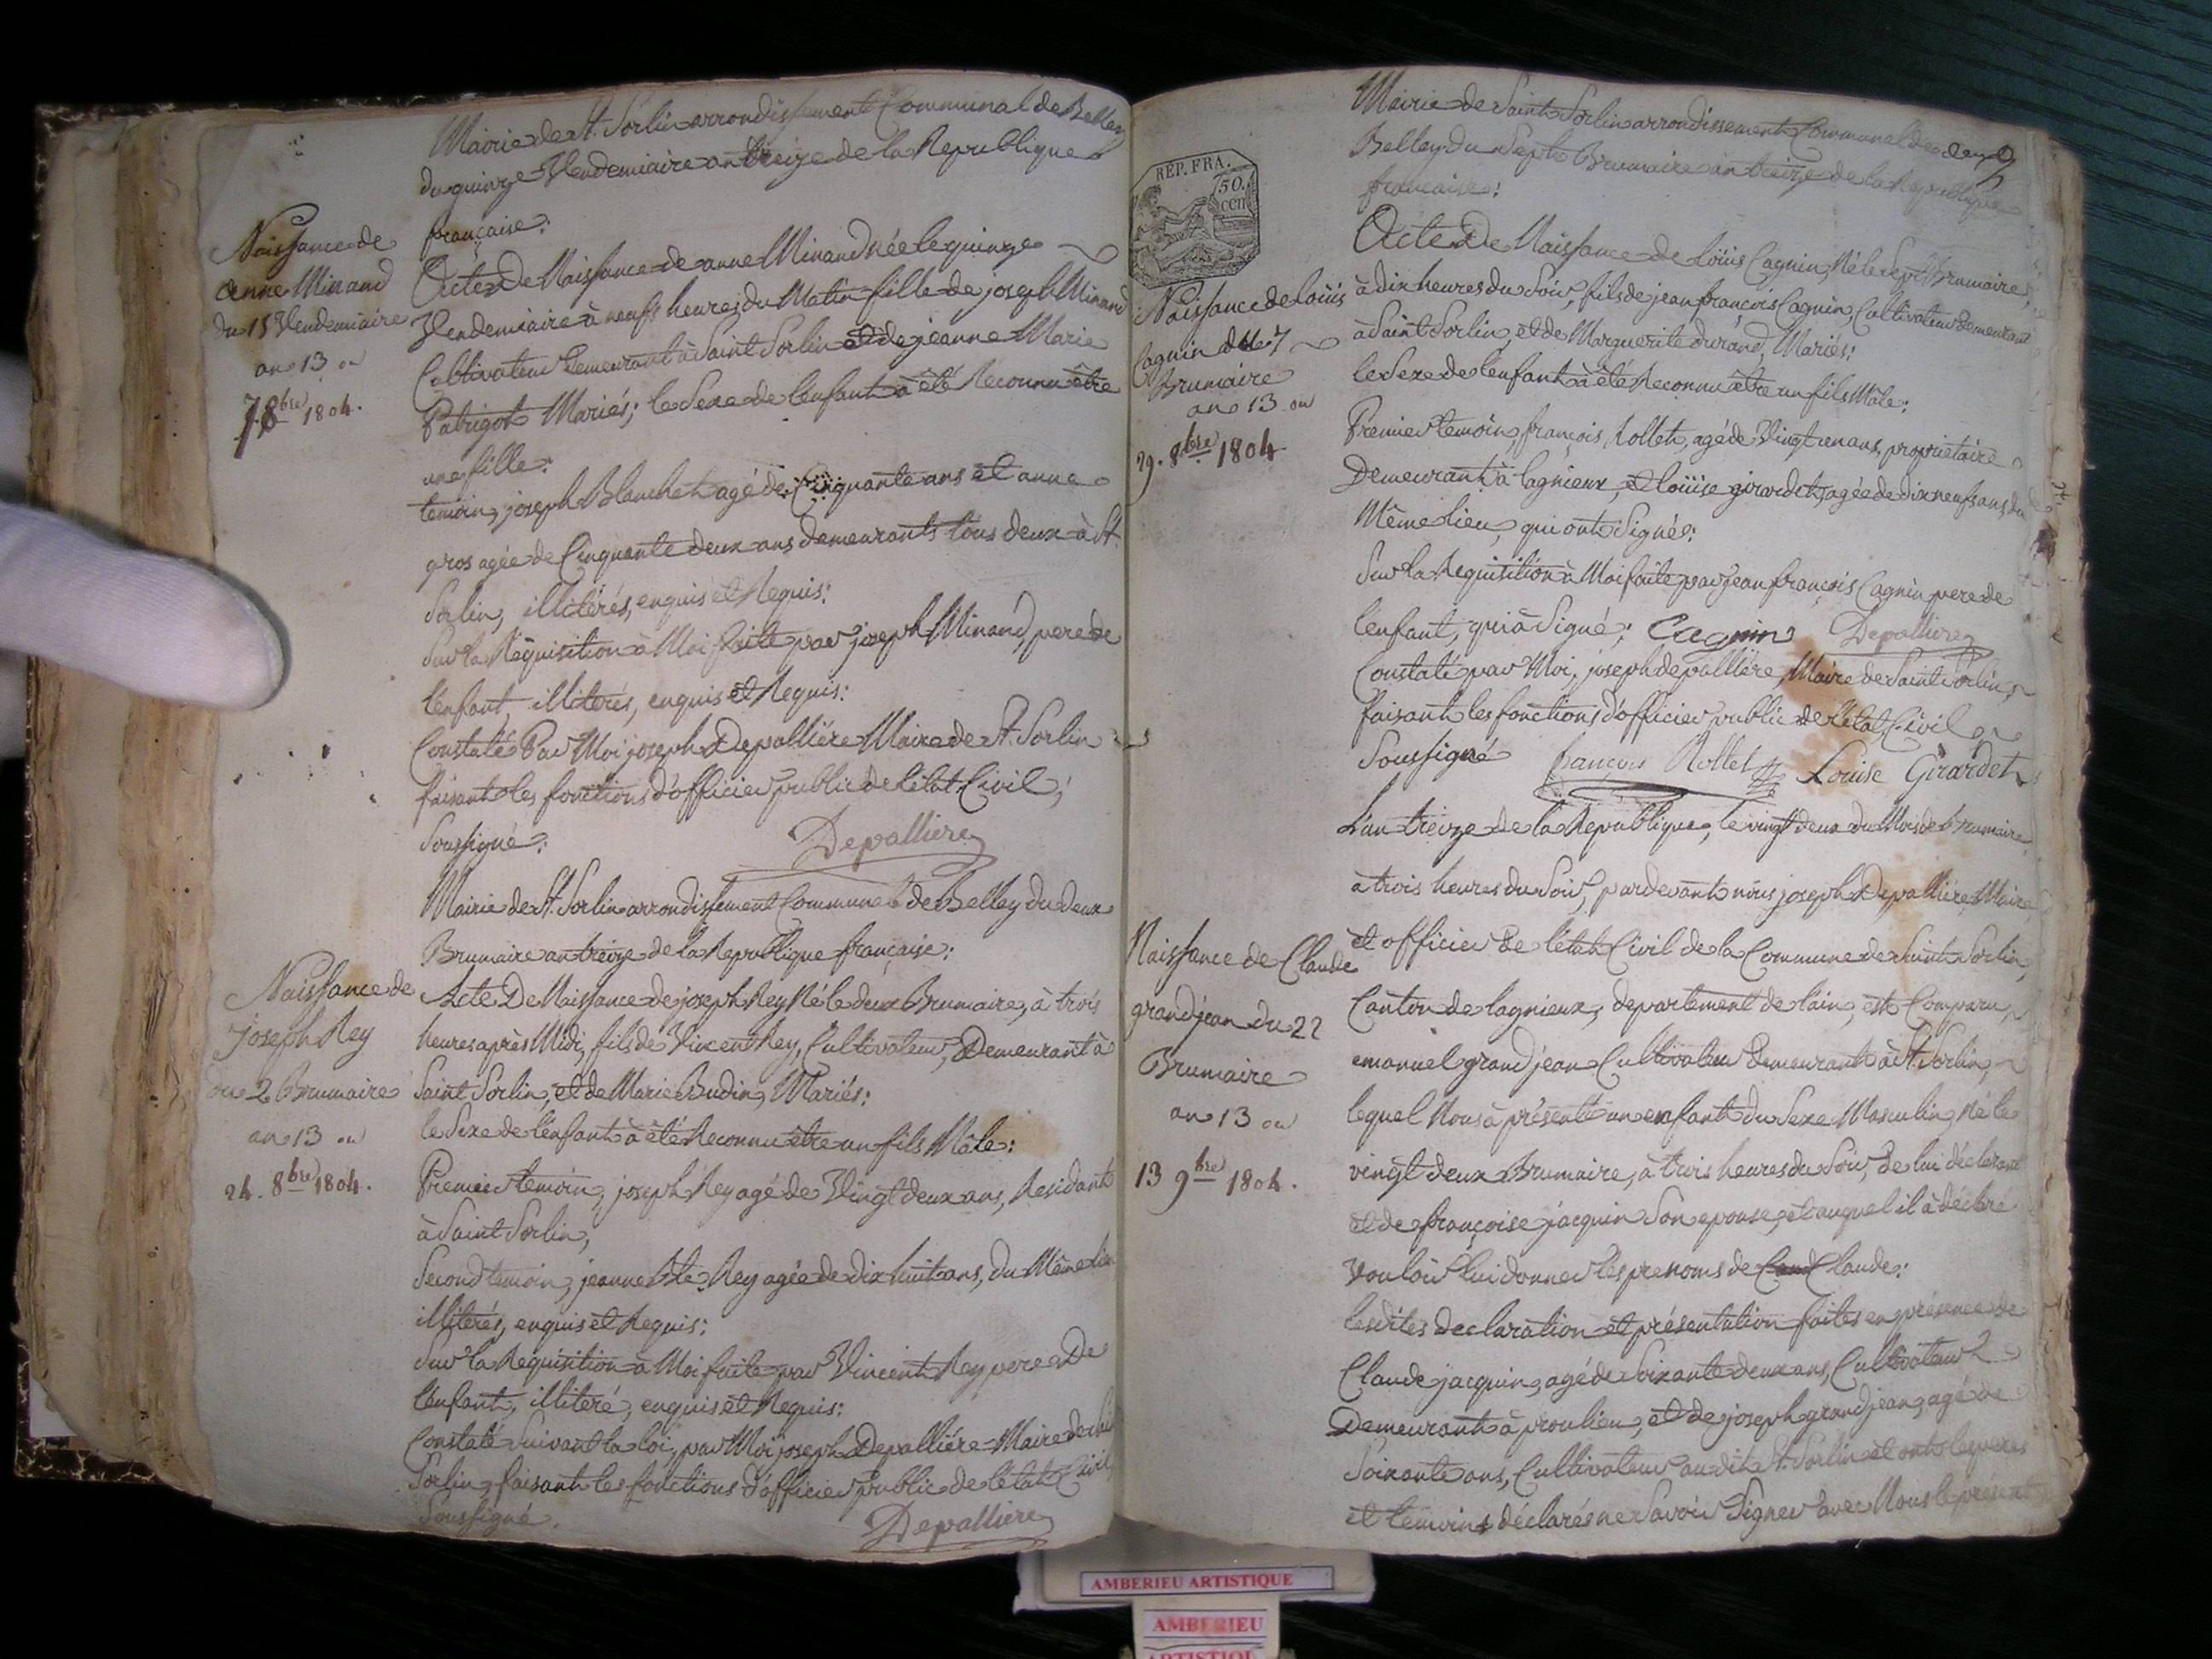 Mairie de St. Sorlin arrondissement Communal de Belley
du quinze Vendemiaire an treize de la Republique
française:
Naissance de
anne Minand
du 15 Vendemiaire
an 13 ou
7. 8bre 1804.
Acte De Naissance de anne Minand née le quinze
Vendemiaire à neufs heures du Matin fille de joseph Minand
Cultivateur demeurant à Saint Sorlin et de jeanne Marie
Patrigot Mariés; le Sexe de l'enfant à été Reconnu être
une fille:
temoin, joseph Blanchet agé de Cinquante ans et anne
gros agée de Cinquante deux ans demeurants tous deux à St.
Sorlin, illiterés, enquis et Requis:
Sur la Réquisition à Moi faite par joseph Minand, pere de
l'enfant, illiterés, enquis et Requis:
Constaté Par Moi joseph Depalliére Maire de St. Sorlin
faisant les fonctions d'officier public de l'état Civil,
Soussigné: Depalliere
Mairie de St. Sorlin arrondissement Communal de Belley du deux
Brumaire an treize de la Republique française:
Naissance de
joseph Rey
du 2 Brumaire
an 13 ou
24. 8bre 1804.
Acte De Naissance de joseph Rey Né le deux Brumaire, à trois
heures après Midi, fils de Vincent Rey, Cultivateur, Demeurant à
Saint Sorlin, et de Marie Budin, Mariés:
le Sexe de l'enfant à été Reconnu être un fils Mâle:
Premier temoin, joseph Rey agé de Vingt deux ans, Residant
à Saint Sorlin,
Second temoin, jeanne Rey agée de dix huit ans, du Même lieu
illiterés, enquis et Requis:
Sur la Requisition à Moi faite par Vincent Rey pere De
l'enfant, illiteré, enquis et Requis:
Constaté Suivant la loi, par Moi joseph Depalliére Maire de
Sorlin, faisant les fonctions d'officier public de l'état Civil
Soussigné. Depalliere
REP. FRA.
50.
cen
Mairie de Saint Sorlin arrondissement Communal de
Belley du Sept Brumaire an treize de la Republique
francaise:
Naissance de Loüis
Cagnin du 7
Brumaire
an 13 ou
29. 8bre 1804
Acte De Naissance de Loüis Cagnin, Né le Sept Brumaire,
à dix heures du Soir, fils de jean françois Cagnin, Cultivateur demeurant
à Saint Sorlin, et de Marguerite durand, Mariés:
le Sexe de l'enfant à été Reconnu être un fils Mâle:
Premier temoin, françois Rollet, agé de Vingt un ans, proprietaire
Demeurant à lagnieux, et loüise girardet, agée de dix neufs ans, du
Même lieu, qui ont Signés:
Sur la Requisition à Moi faite par jean françois Cagnin pere de
l'enfant, qui à Signé; Cagnin Depalliere
Constaté par Moi, joseph depalliére, Maire de Saint Sorlin,
faisant les fonctions d'officier public de l'état Civil
Soussigné françois Rollet Louise Girardet
Naissance de Claude
grandjean du 22
Brumaire
an 13 ou
13 9bre 1804.
L'an treize de la Republique, le vingt deux du Mois de brumaire,
à trois heures du Soir, pardevant nous joseph Depalliére Maire
et officier de l'état Civil de la Commune de Saint Sorlin,
Canton de lagnieux, departement de lain, est Comparu
emanuel grandjean Cultivateur demeurant à St. Sorlin,
lequel Nous à présenté un enfant du Sexe Masculin, Né le
vingt deux Brumaire, à trois heures du Soir, de lui déclarant
et de françoise jacquin Son epouse, et auquel il à déclaré
Vouloir lui donner les prenoms de Claude:
lesdites declaration et présentation faites en présence de
Claude jacquin, agé de Soixante deux ans, Cultivateur
Demeurant à proulieu, et de joseph grandjean, agé de
Soixante ans, Cultivateur audit St. Sorlin et ont les peres
et temoins déclarés ne Savoir Signer avec Nous le présent
AMBERIEU ARTISTIQUE
AMBERIEU
ARTISTIQUE